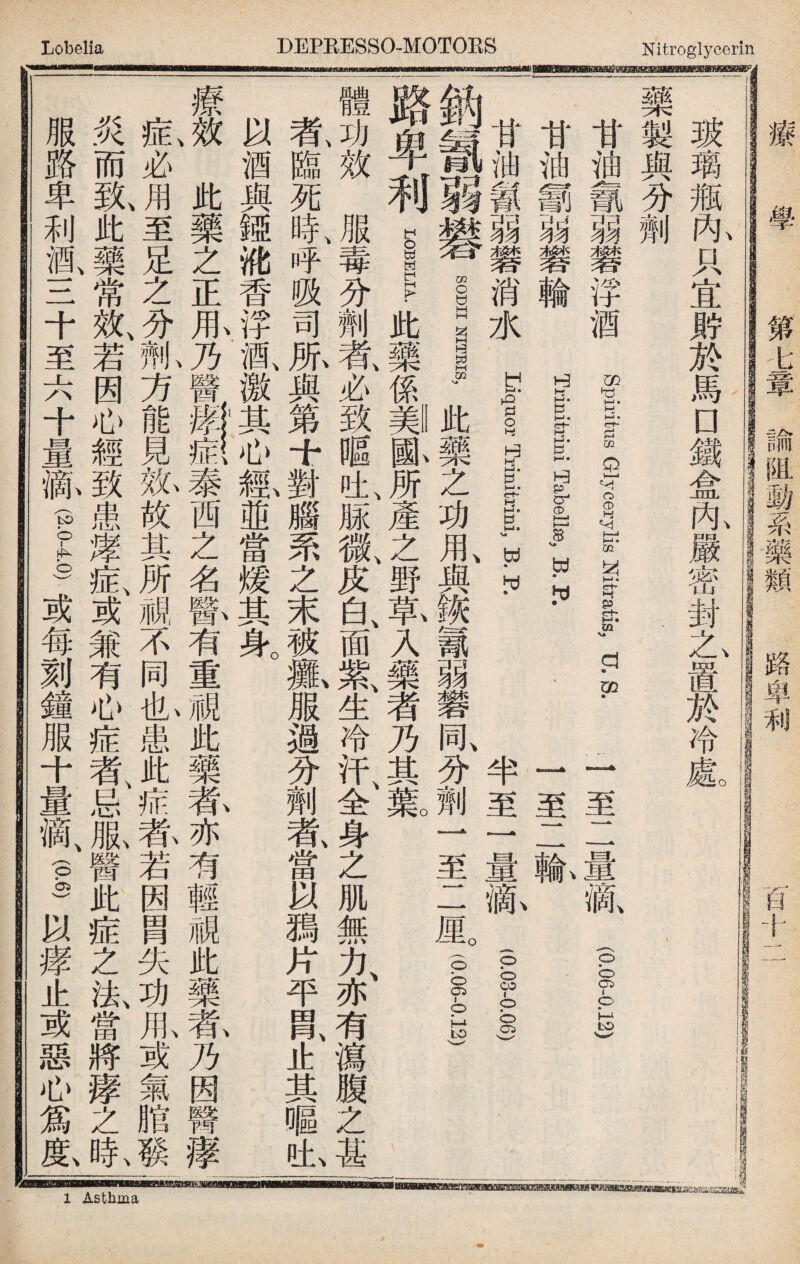 Lobelia
DEPRESSO-MOTORS
Nitroglycerin
療學 第七章 論阻動系藥類 路卑利 百十二
玻璃瓶內、只宜貯於馬口鐵盒內、嚴密封之、置於冷處。
藥製與分劑
甘油氝弱礬浮酒 Spiritus Glycerylis Nitratis, U. S. 一至二量滴、(0.06-0.12)
甘油氝弱礬輪 Trinitrini Tabellæ, B. P. 一至二輪、
甘油氝弱礬消水 Liquor Trinitrini, B. P. 半至一量滴、(0.03-0.06)
鈉氝弱礬 SODII NITRIS, 此藥之功用、與鉃氝弱礬同、分劑一至二厘。(0.06-0.12)
路卑利 LOBELIA. 此藥係美國、所產之野草、入藥者乃其葉。
體功效 服毒分劑者、必致嘔吐、脉微、皮白、面紫、生冷汗、全身之肌無力、亦有瀉腹之甚
者、臨死時、呼吸司所、與第十對腦系之末被癱、服過分劑者、當以鴉片平胃、止其嘔吐、
以酒與錏㲸香浮酒、激其心經、並當煖其身。
療效 此藥之正用、乃醫㾾症、泰西之名醫、有重視此藥者、亦有輕視此藥者、乃因醫㾾
症、必用至足之分劑、方能見效、故其所視不同也、患此症者、若因胃失功用、或氣脗發
炎而致、此藥常效、若因心經致患㾾症、或兼有心症者、忌服、醫此症之法、當將㾾之時、
服路卑利酒、三十至六十量滴、(2.0-4.0) 或每刻鐘服十量滴、(0.6) 以㾾止或惡心爲度、
1 Asthma